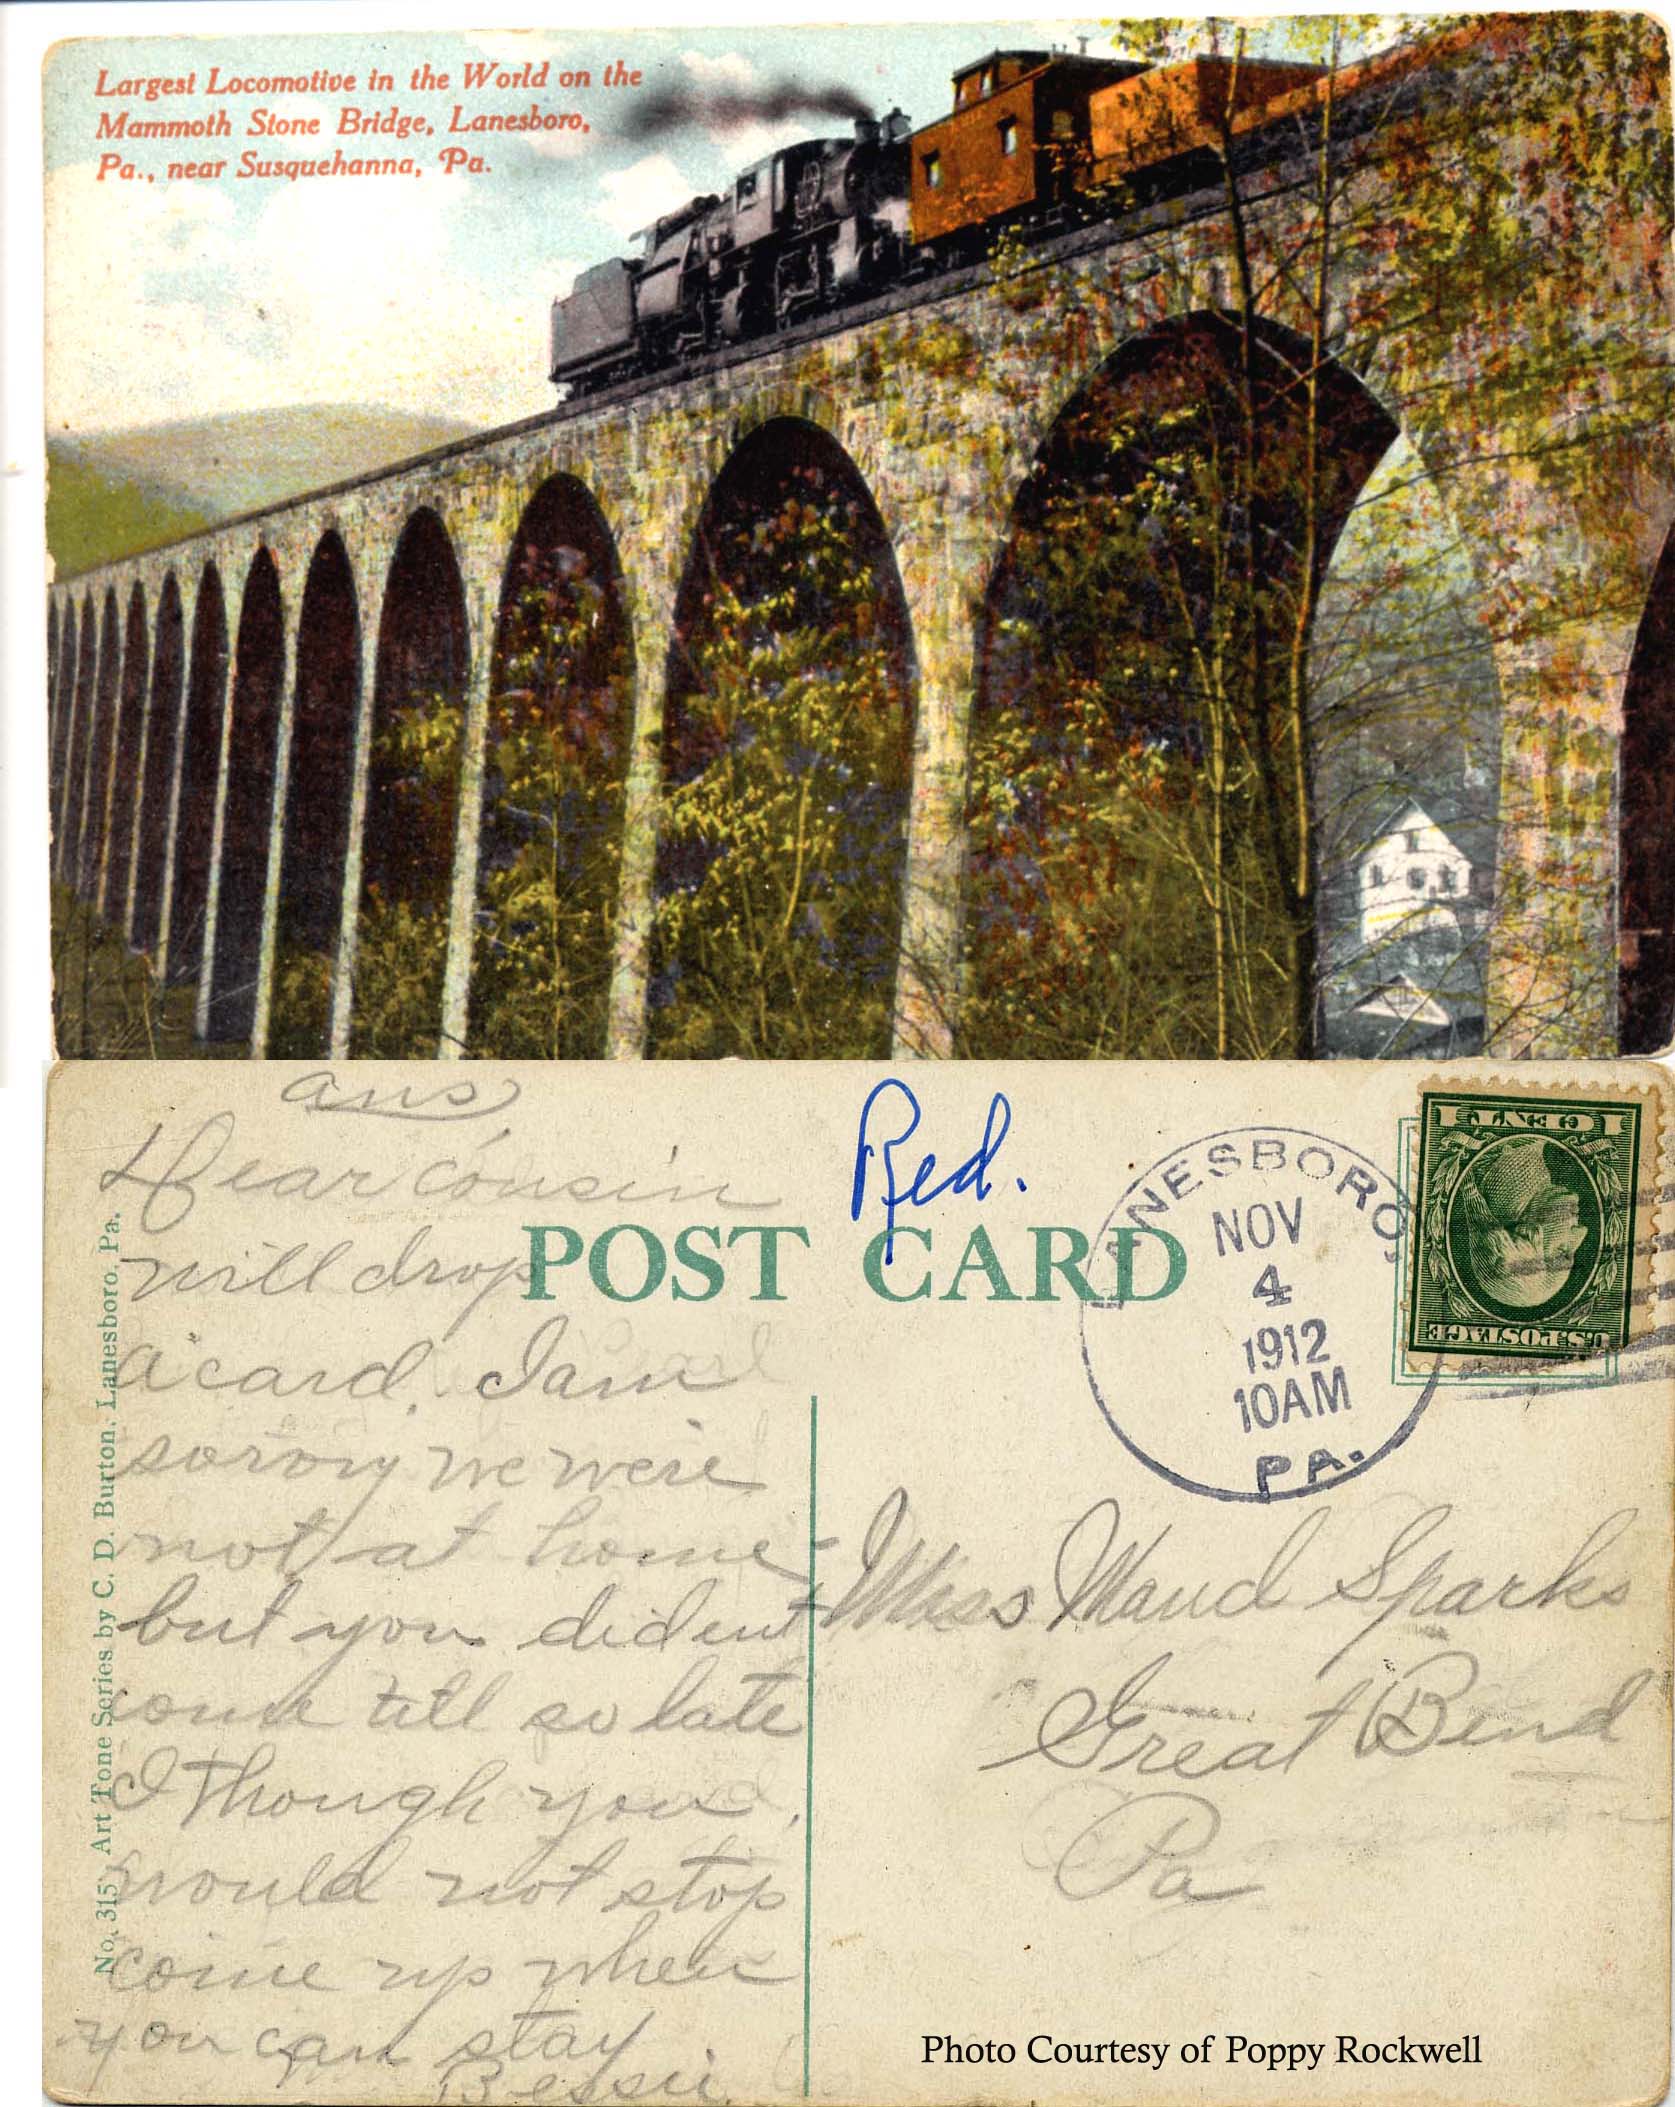 Largest Locomotive in the World on the
Mammoth Stone Bridge, Lanesboro,
Pa., near Susquehanna, Pa.
ans
Dear cousin
will drop
a card. I am
sorry we were
not at home
but you dident
come till so late
I though you
would not stop
come up when
you can stay
Bessie
No. 315 Art Tone Series by C. D. Burton, Lanesboro, Pa.
POST CARD
Red.
LANESBORO,
NOV
4
1912
10AM
PA.
U.S. POSTAGE
1 CENT 1
Miss Maud Sparks
Great Bend
Pa
Photo Courtesy of Poppy Rockwell